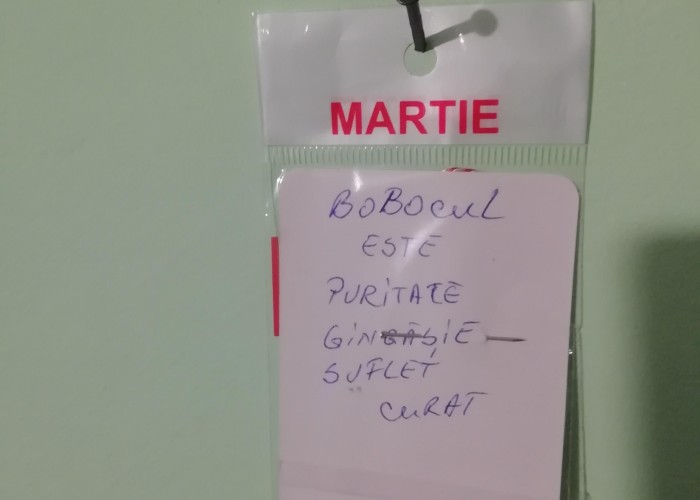 MARTIE
BOBOCUL
ESTE
PURITATE
GINGĂȘIE
SUFLET
CURAT